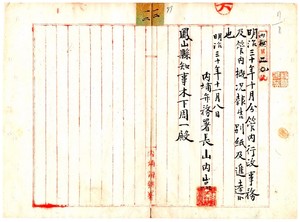 明治三十年十月分管内行政事務
及管内概况報告別紙及進達候
也
明治三十年十一月八日
内埔弁務署長山内
鳳山縣知事木下周一殿